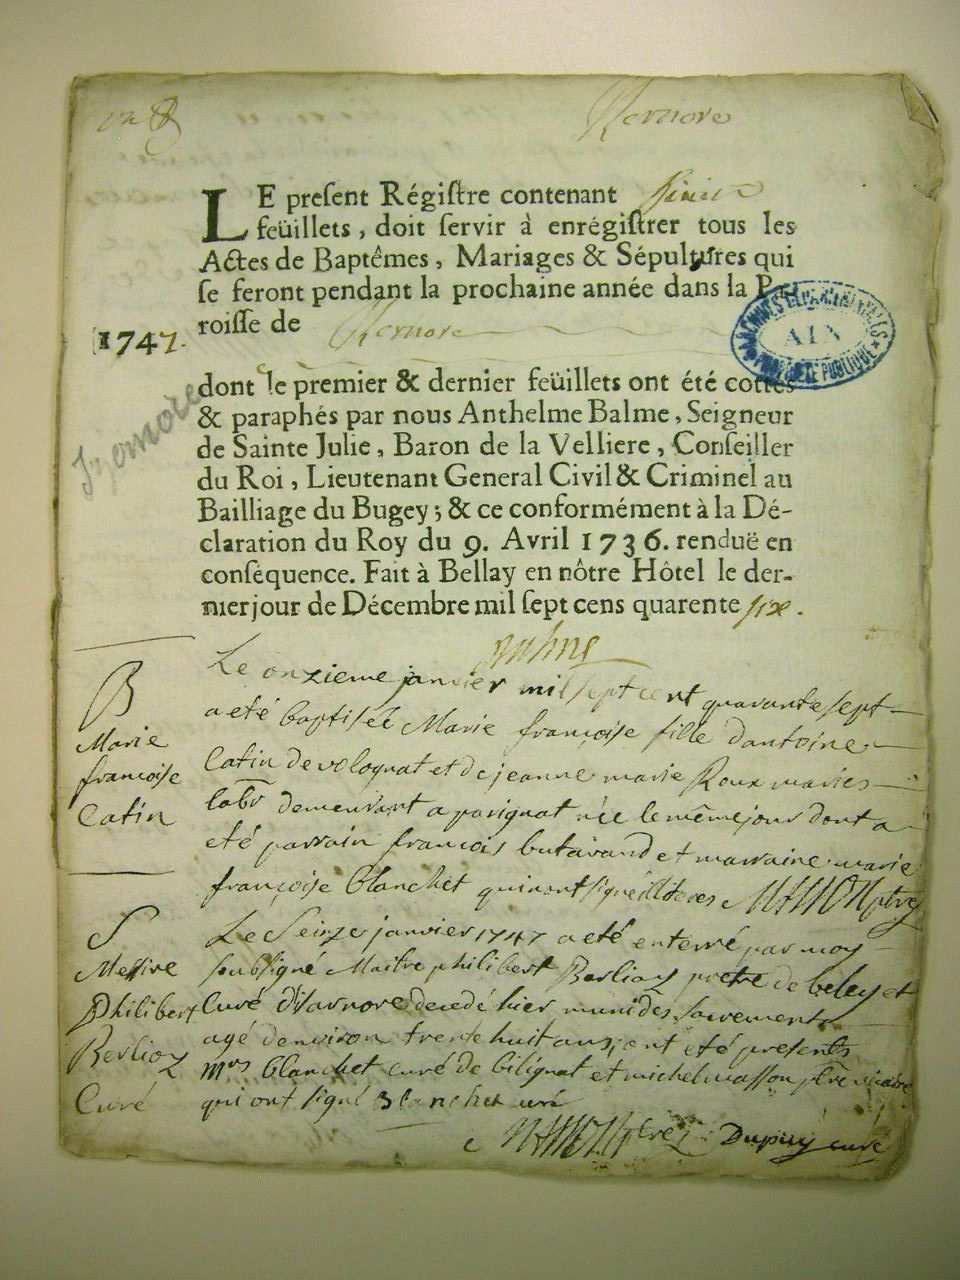 Isernore
LE preſent Régiſtre contenant
feüillets, doit ſervir à enrégiſtrer tous les
Actes de Baptêmes, Mariages & Sépultures qui
ſe feront pendant la prochaine année dans la Pa-
roiſſe de Isernore
1747.
ARCHIVES DÉPARTEMENTALES
AIN
PROPRIÉTÉ PUBLIQUE
dont le premier & dernier feüillets ont été cottés
& paraphés par nous Anthelme Balme, Seigneur
de Sainte Julie, Baron de la Velliere, Conſeiller
du Roi, Lieutenant General Civil & Criminel au
Bailliage du Bugey; & ce conformément à la Dé-
claration du Roy du 9. Avril 1736. renduë en
conſéquence. Fait à Bellay en nôtre Hôtel le der-
nier jour de Décembre mil ſept cens quarente six.
Izernore
B
Marie
françoise
Catin
Le onzieme janvier mil sept cent quarante sept
a eté baptisée Marie françoise fille d'antoine
Catin de volognat et de jeanne marie Roux mariés
labr demeurant a parignat née le même jour dont a
eté parrain françois butavand et marraine marie
françoise blanchet qui n'ont signé illiteres
S
Messire
Philibert
Berlioz
Curé
Le Seize janvier 1747 a eté enterré par moy
soussigné Maitre philibert Berlioz prêtre de beley et
Curé d'isarnore decedé hier muni des sacrements
agé d'environ trente huit ans, ont eté presents
Mrs blanchet curé de bilignat et michel masson ptre vicaire
qui ont signé Blanchet curé
Dupuy curé